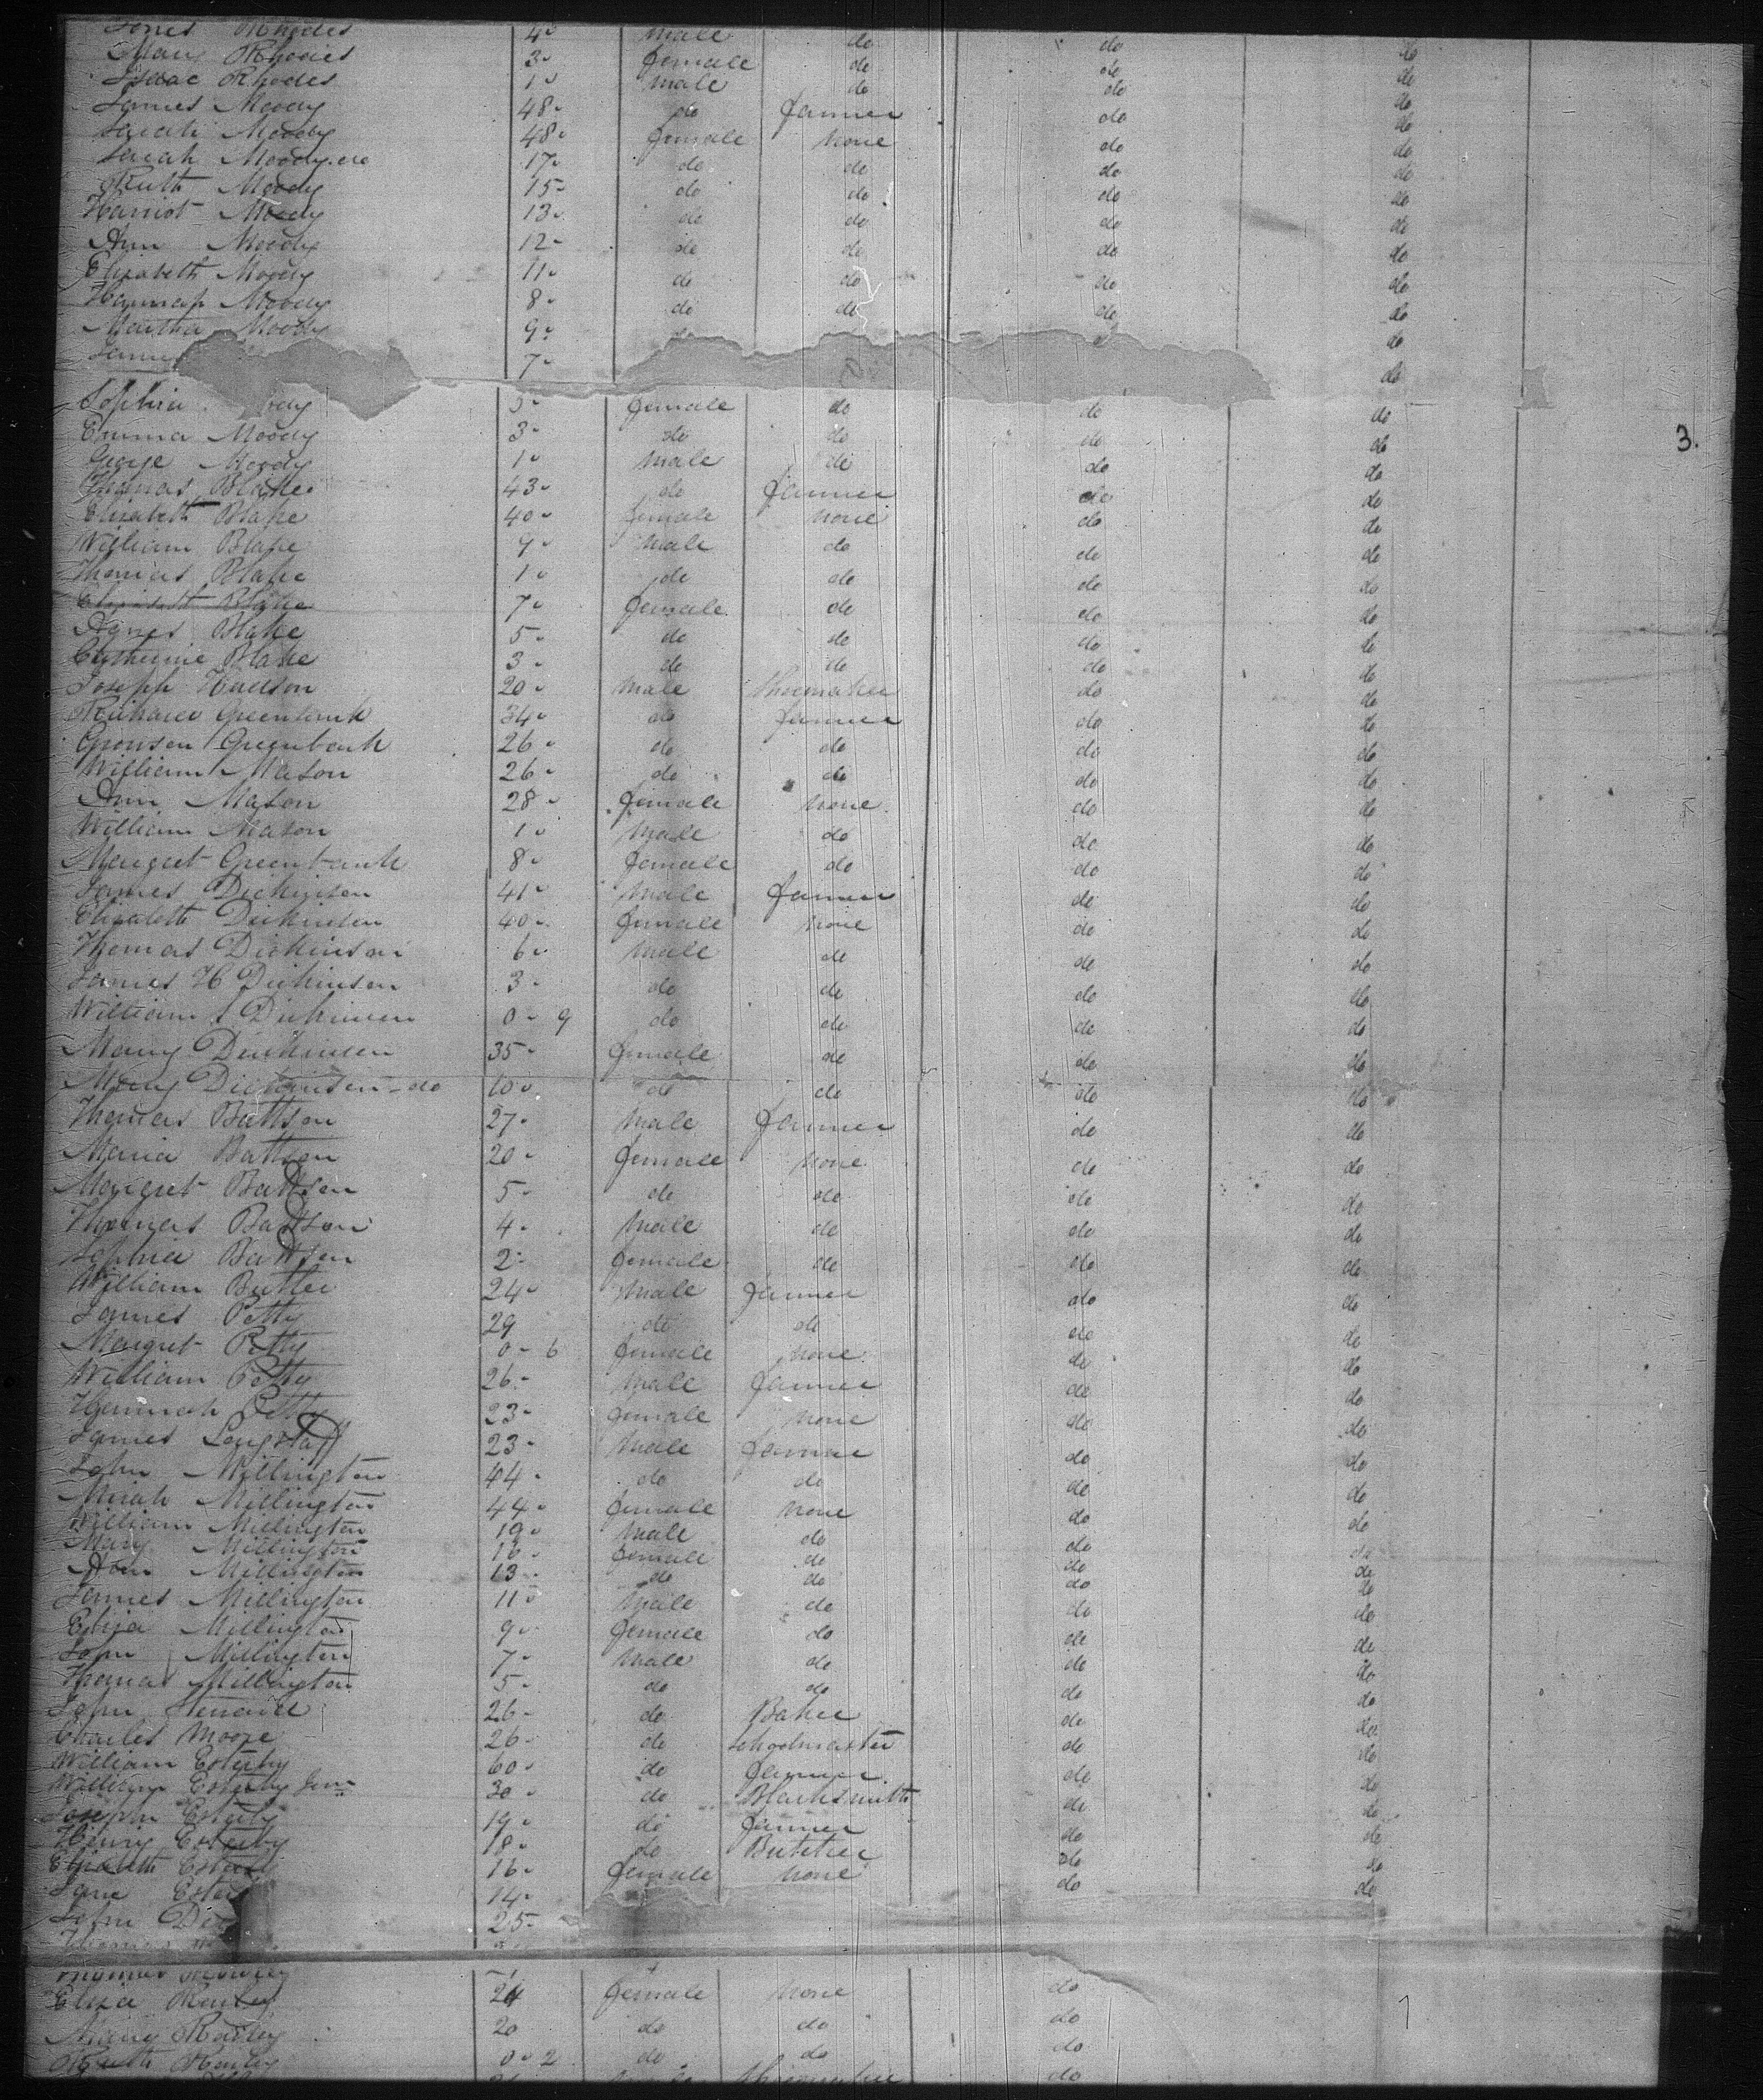 Jones Rhodes 4 male do do do
Mary Rhodes 3 female do do do
Isaac Rhodes 1 male do do do
James Moody 48 do farmer do do
Sarah Moody 48 female none do do
Sarah Moody do 17 do do do do
Ruth Moody 15 do do do do
Harriot Moody 13 do do do do
Ann Moody 12 do do do do
Elizabeth Moody 11 do do do do
Hannah Moody 8 do do do do
Martha Moody 9 do do
James 7 do
Sophia 5 female do do do
Emma Moody 3 do do do do
George Moody 1 male do do do
Thomas Blake 43 do farmer do do
Elizabeth Blake 40 female none do do
William Blake 9 male do do do
Thomas Blake 1 do do do do
Elizabeth Blake 7 female do do do
Agnes Blake 5 do do do do
Catherine Blake 3 do do do do
Joseph Hudson 20 male shoemaker do do
Richard Greenbank 34 do farmer do do
Greenbank 26 do do do do
William Mason 26 do do do do
Ann Mason 28 female none do do
William Mason 1 male do do do
Margret Greenbank 8 female do do do
James Dickinson 41 male farmer do do
Elizabeth Dickinson 40 female none do do
Thomas Dickinson 6 male do do do
James H Dickinson 3 do do do do
William S Dickinson 0-9 do do do do
Mary Dickinson 35 female do do do
Mary Dickinson do 10 do do do do
Thomas Battson 27 male farmer do do
Maria Battson 20 female none do do
Margret Battson 5 do do do do
Thomas Battson 4 male do do do
Sophia Battson 2 female do do do
William Butler 24 male farmer do do
James Petty 29 do do do do
Margret Petty 0-6 female none do do
William Petty 26 male farmer do do
Hannah Petty 23 female none do do
James Longstaff 23 male farmer do do
John Millington 44 do do do do
Mirah Millington 44 female none do do
William Millington 19 male do do do
Mary Millington 16 female do do do
Ann Millington 13 do do do do
James Millington 11 male do do do
Eliza Millington 9 female do do do
John Millington 7 male do do do
Thomas Millington 5 do do do do
John 26 do Baker do do
Charles Moore 26 do schoolmaster do do
William Esterby 60 do farmer do do
William Esterby Junr 30 do Blacksmith do do
Joseph Esterby 19 do farmer do do
Henry Esterby 18 do Butcher do do
Elizabeth Esterby 16 female none do do
Jane Ester 14
John 25
Thomas
Eliza Rowley 24 female none do
Mary Rowley 20 do do do
Ruth Rowley 0-2 do do do
3.